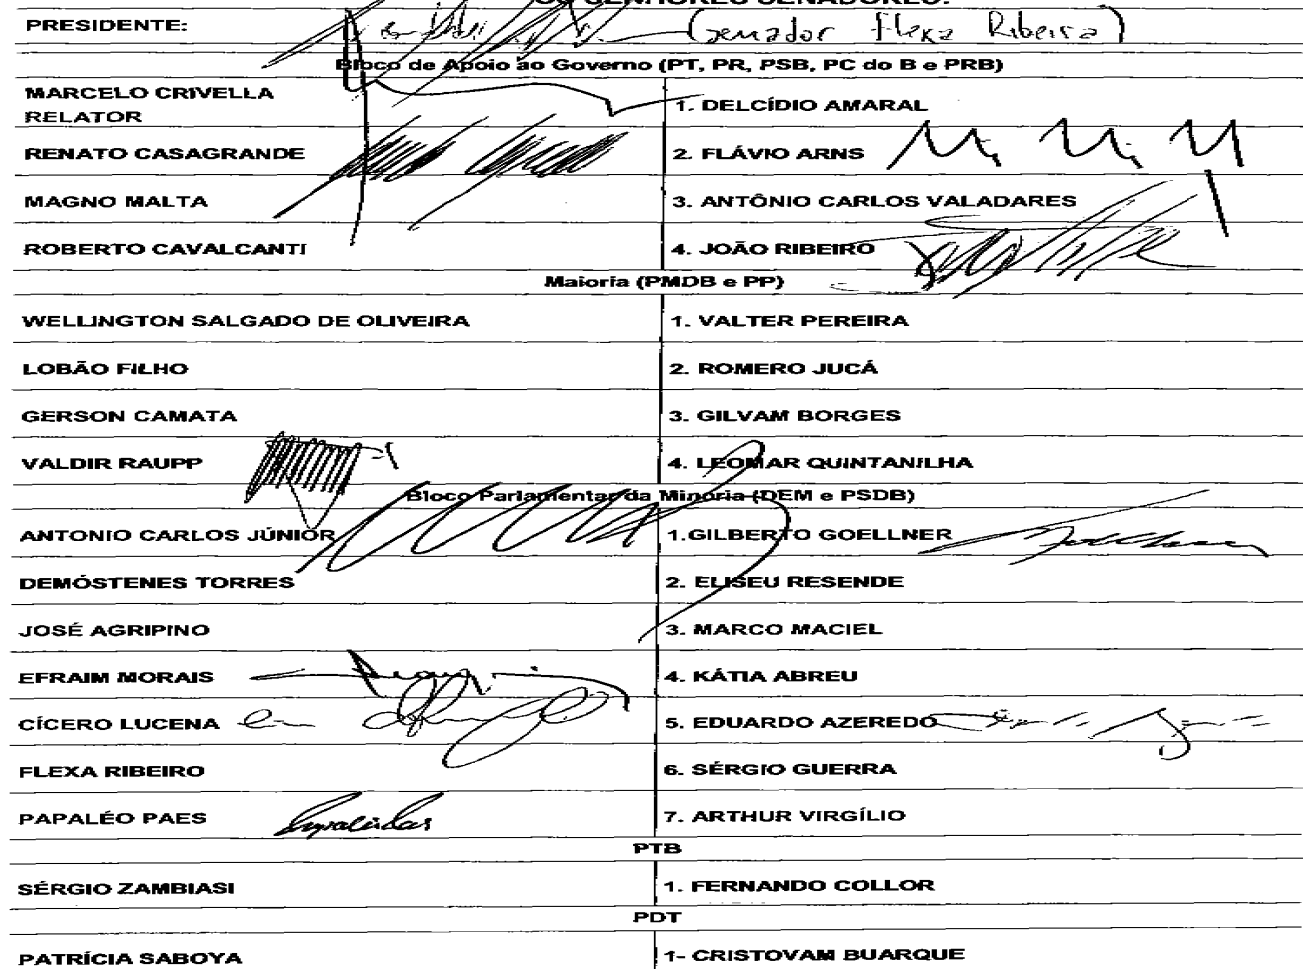 OS SENHORES SENADORES:
PRESIDENTE: (Senador Flexa Ribeiro)
Bloco de Apoio ao Governo (PT, PR, PSB, PC do B e PRB)
MARCELO CRIVELLA
RELATOR
1. DELCÍDIO AMARAL
RENATO CASAGRANDE
2. FLÁVIO ARNS
MAGNO MALTA
3. ANTÔNIO CARLOS VALADARES
ROBERTO CAVALCANTI
4. JOÃO RIBEIRO
Maioria (PMDB e PP)
WELLINGTON SALGADO DE OLIVEIRA
1. VALTER PEREIRA
LOBÃO FILHO
2. ROMERO JUCÁ
GERSON CAMATA
3. GILVAM BORGES
VALDIR RAUPP
4. LEOMAR QUINTANILHA
Bloco Parlamentar da Minoria (DEM e PSDB)
ANTONIO CARLOS JÚNIOR
1.GILBERTO GOELLNER
DEMÓSTENES TORRES
2. ELISEU RESENDE
JOSÉ AGRIPINO
3. MARCO MACIEL
EFRAIM MORAIS
4. KÁTIA ABREU
CÍCERO LUCENA
5. EDUARDO AZEREDO
FLEXA RIBEIRO
6. SÉRGIO GUERRA
PAPALÉO PAES
7. ARTHUR VIRGÍLIO
PTB
SÉRGIO ZAMBIASI
1. FERNANDO COLLOR
PDT
PATRÍCIA SABOYA
1- CRISTOVAM BUARQUE